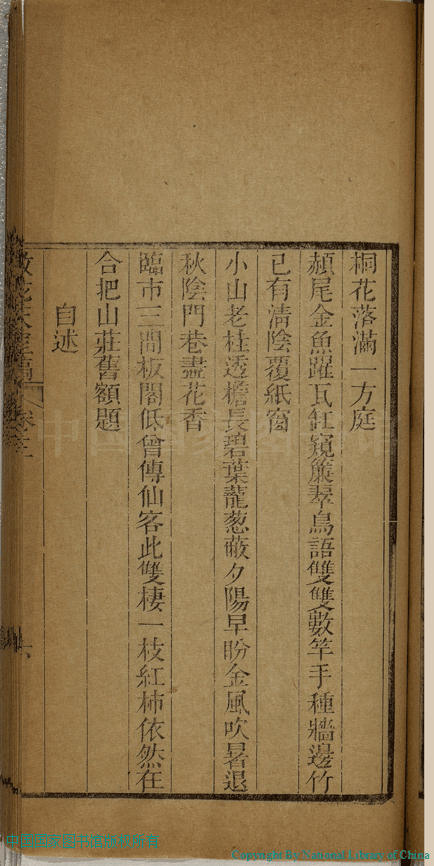 桐花落滿一方庭
頳尾金魚躍瓦缸窺簾羣鳥語雙雙數竿手種牆邊竹
已有淸陰覆紙窗
小山老桂透檐長碧葉蘢葱蔽夕陽早盼金風吹暑退
秋陰門巷盡花香
臨市三間板閣低曾傳仙客此雙棲一枝紅柿依然在
合把山莊舊額題
自述
卷三
六
Copyright By National Library of China